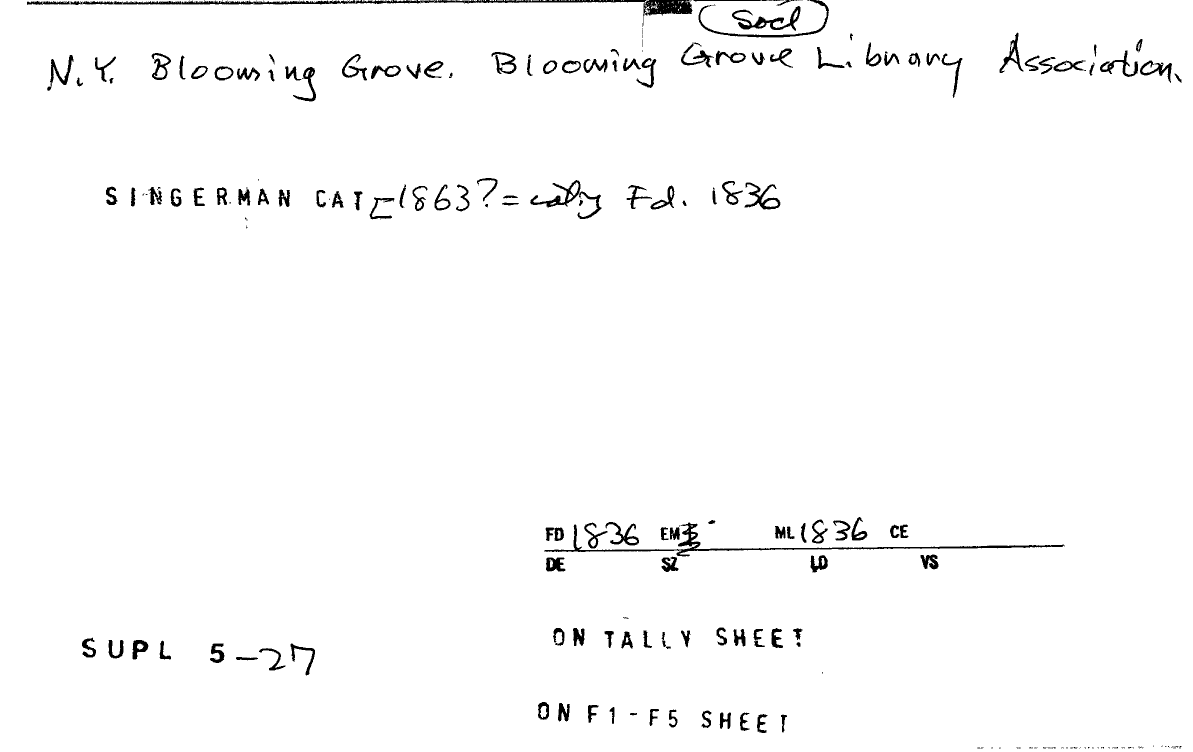 Socl
N.Y. Blooming Grove. Blooming Grove Library Association.
SINGERMAN CAT [1863? = Fd. 1836
FD 1836 EM ML 1836 CE
DE SZ LD VS
ON TALLY SHEET
SUPL 5-27
ON F1-F5 SHEET